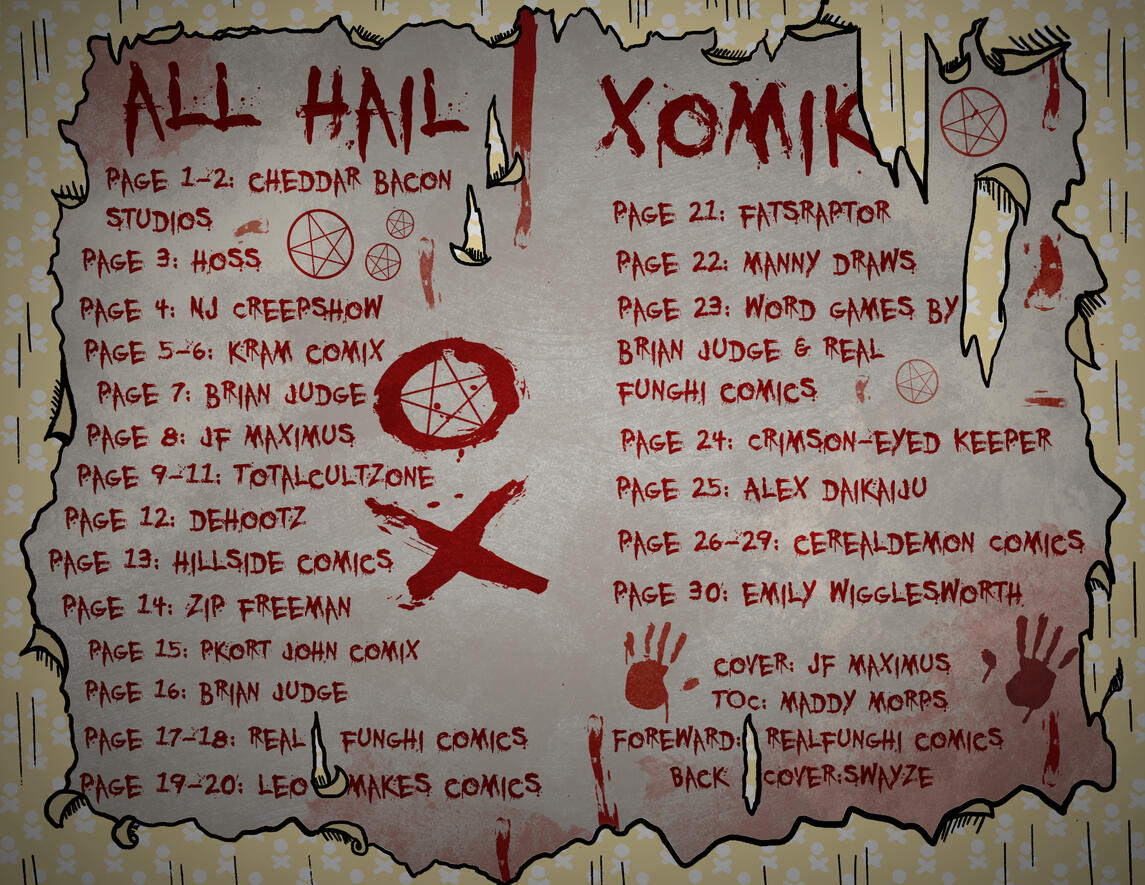 ALL HAIL XOMIK
PAGE 1-2: CHEDDAR BACON
STUDIOS
PAGE 3: HOSS
PAGE 4: NJ CREEPSHOW
PAGE 5-6: KRAM COMIX
PAGE 7: BRIAN JUDGE
PAGE 8: JF MAXIMUS
PAGE 9-11: TOTALCULTZONE
PAGE 12: DEHOOTZ
PAGE 13: HILLSIDE COMICS
PAGE 14: ZIP FREEMAN
PAGE 15: PKORT JOHN COMIX
PAGE 16: BRIAN JUDGE
PAGE 17-18: REAL FUNGHI COMICS
PAGE 19-20: LEO MAKES COMICS
PAGE 21: FATSRAPTOR
PAGE 22: MANNY DRAWS
PAGE 23: WORD GAMES BY
BRIAN JUDGE & REAL
FUNGHI COMICS
PAGE 24: CRIMSON-EYED KEEPER
PAGE 25: ALEX DAIKAIJU
PAGE 26-29: CEREALDEMON COMICS
PAGE 30: EMILY WIGGLESWORTH
COVER: JF MAXIMUS
TOC: MADDY MORPS
FOREWARD: REALFUNGHI COMICS
BACK COVER:SWAYZE